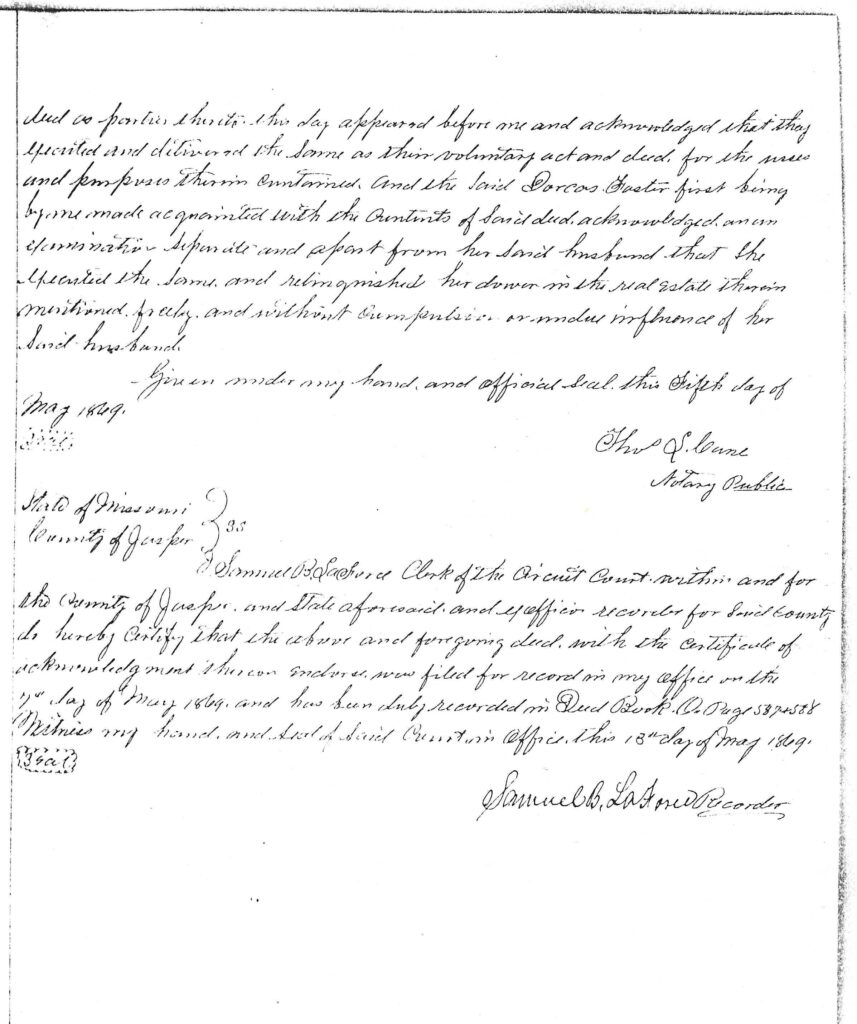 deed as parties thereto this day appeared before me and acknowledged that they
executed and delivered the same as their voluntary act and deed, for the uses
and purposes therein contained. And the said Dorcas Foster first being
by me made acquainted with the contents of said deed, acknowledged, on an
examination separate and apart from her said husband that she
executed the same, and relinquished her dower in the real estate therein
mentioned, freely, and without compulsion or undue influence of her
said husband.
Given under my hand, and official seal, this Fifth day of
May 1869.
Seal
Thos S. Cane
Notary Public
State of Missouri
County of Jasper } SS
I Samuel B. LaForce Clerk of the Circuit Court within and for
the County of Jasper, and State aforesaid, and exofficio recorder for said County
do hereby Certify that the above and foregoing deed, with the certificate of
acknowledgment thereon endorse, was filed for record in my office on the
day of May 1869, and has been duly recorded in Deed Book. O. Page 587+588
Witness my hand, and seal of said Court, in Office, this 13th day of May 1869.
Seal
Samuel B. LaForce Recorder